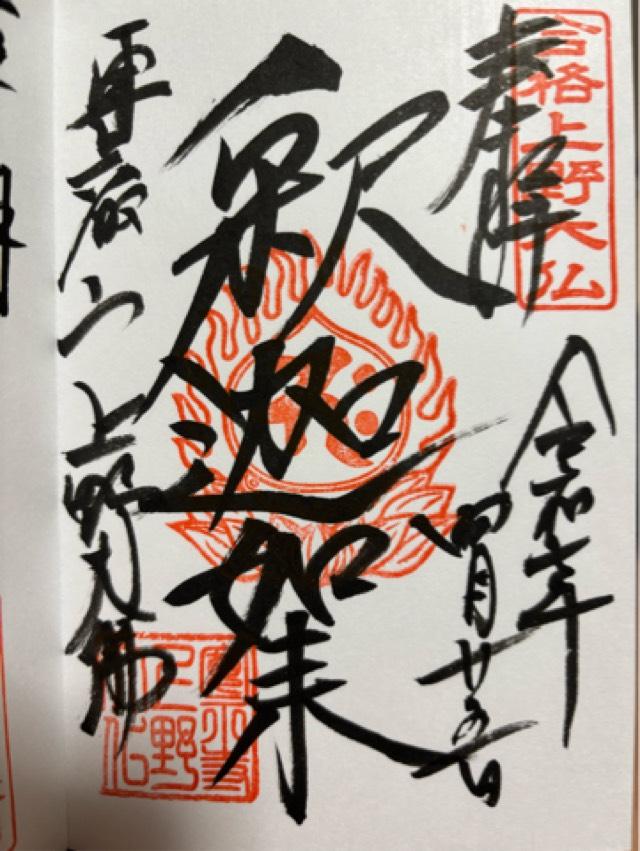 合格上野大仏
奉拝
令和
四月廿
釈迦如来
東叡山 上野大佛
寛永寺
上野
大仏